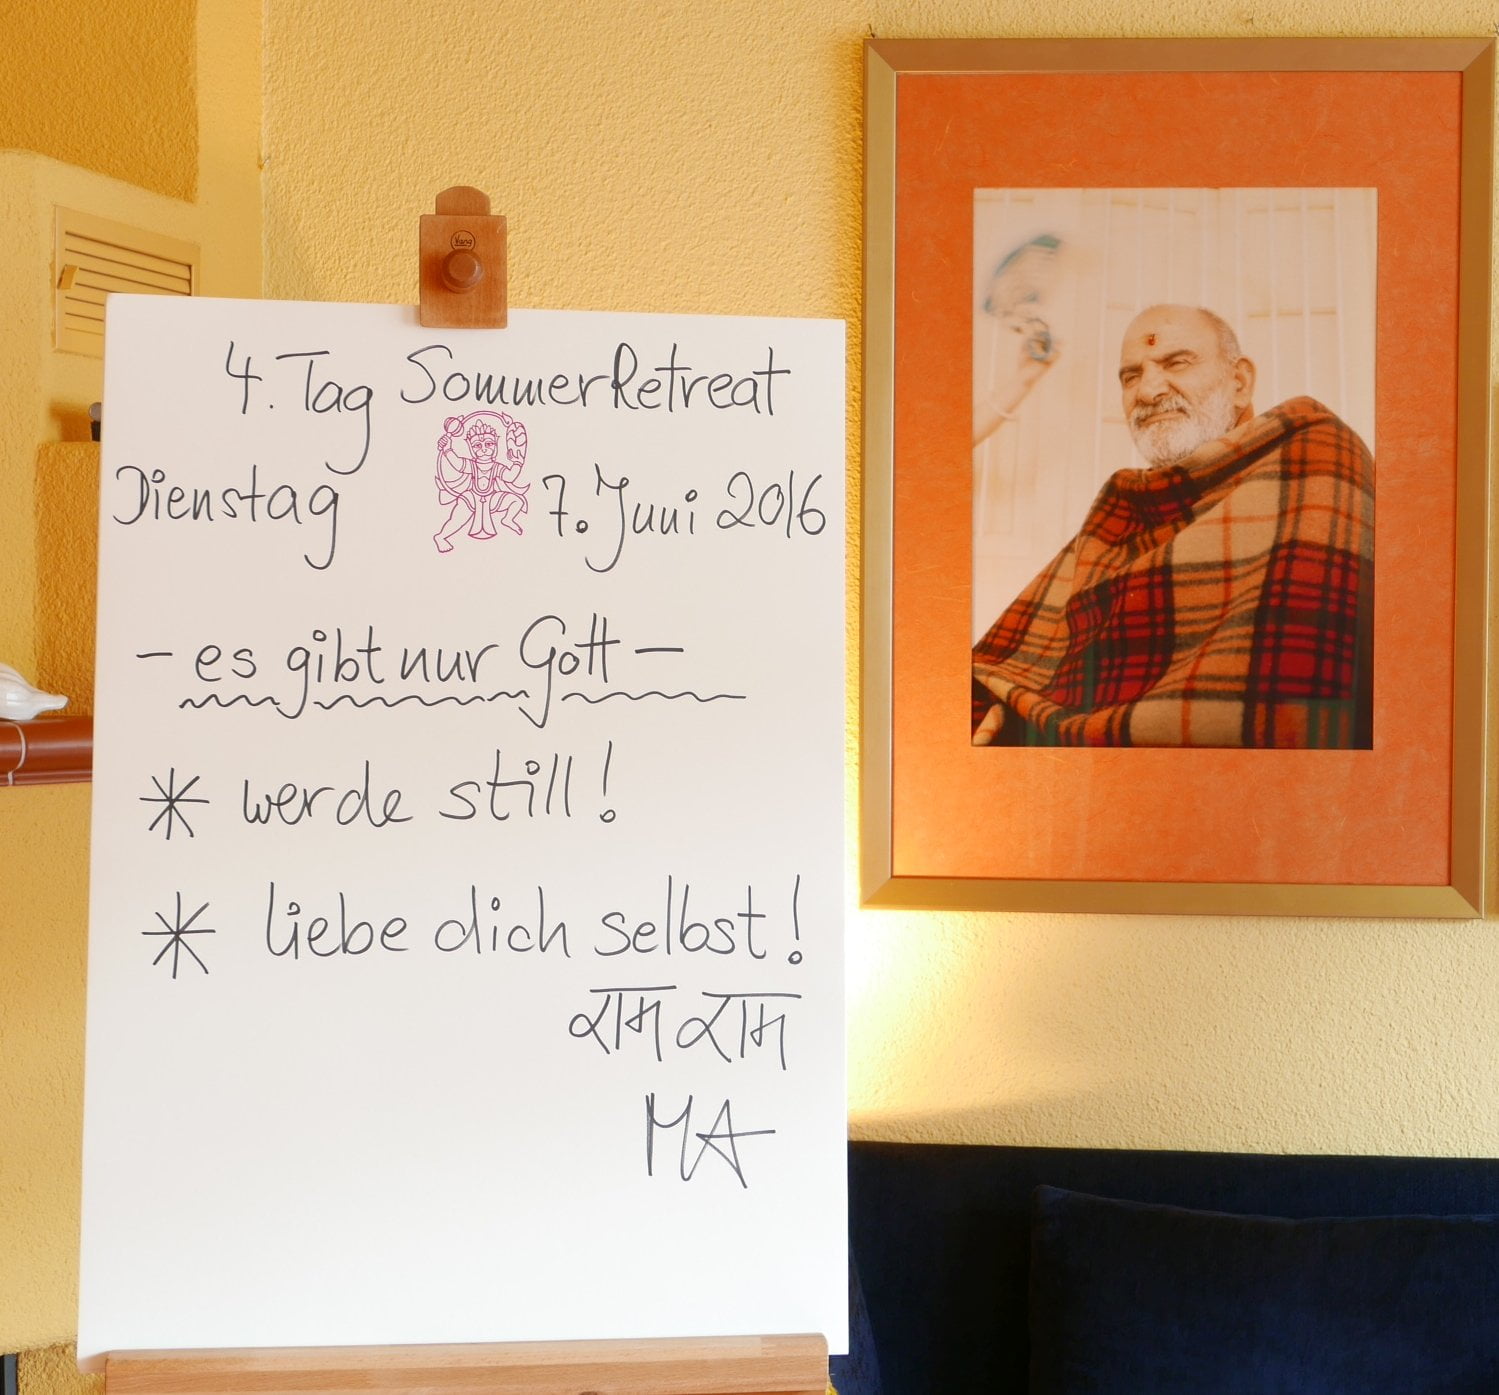 4. Tag SommerRetreat
Dienstag 7. Juni 2016
- es gibt nur Gott -
* werde still!
* liebe dich selbst!
राम राम
MA